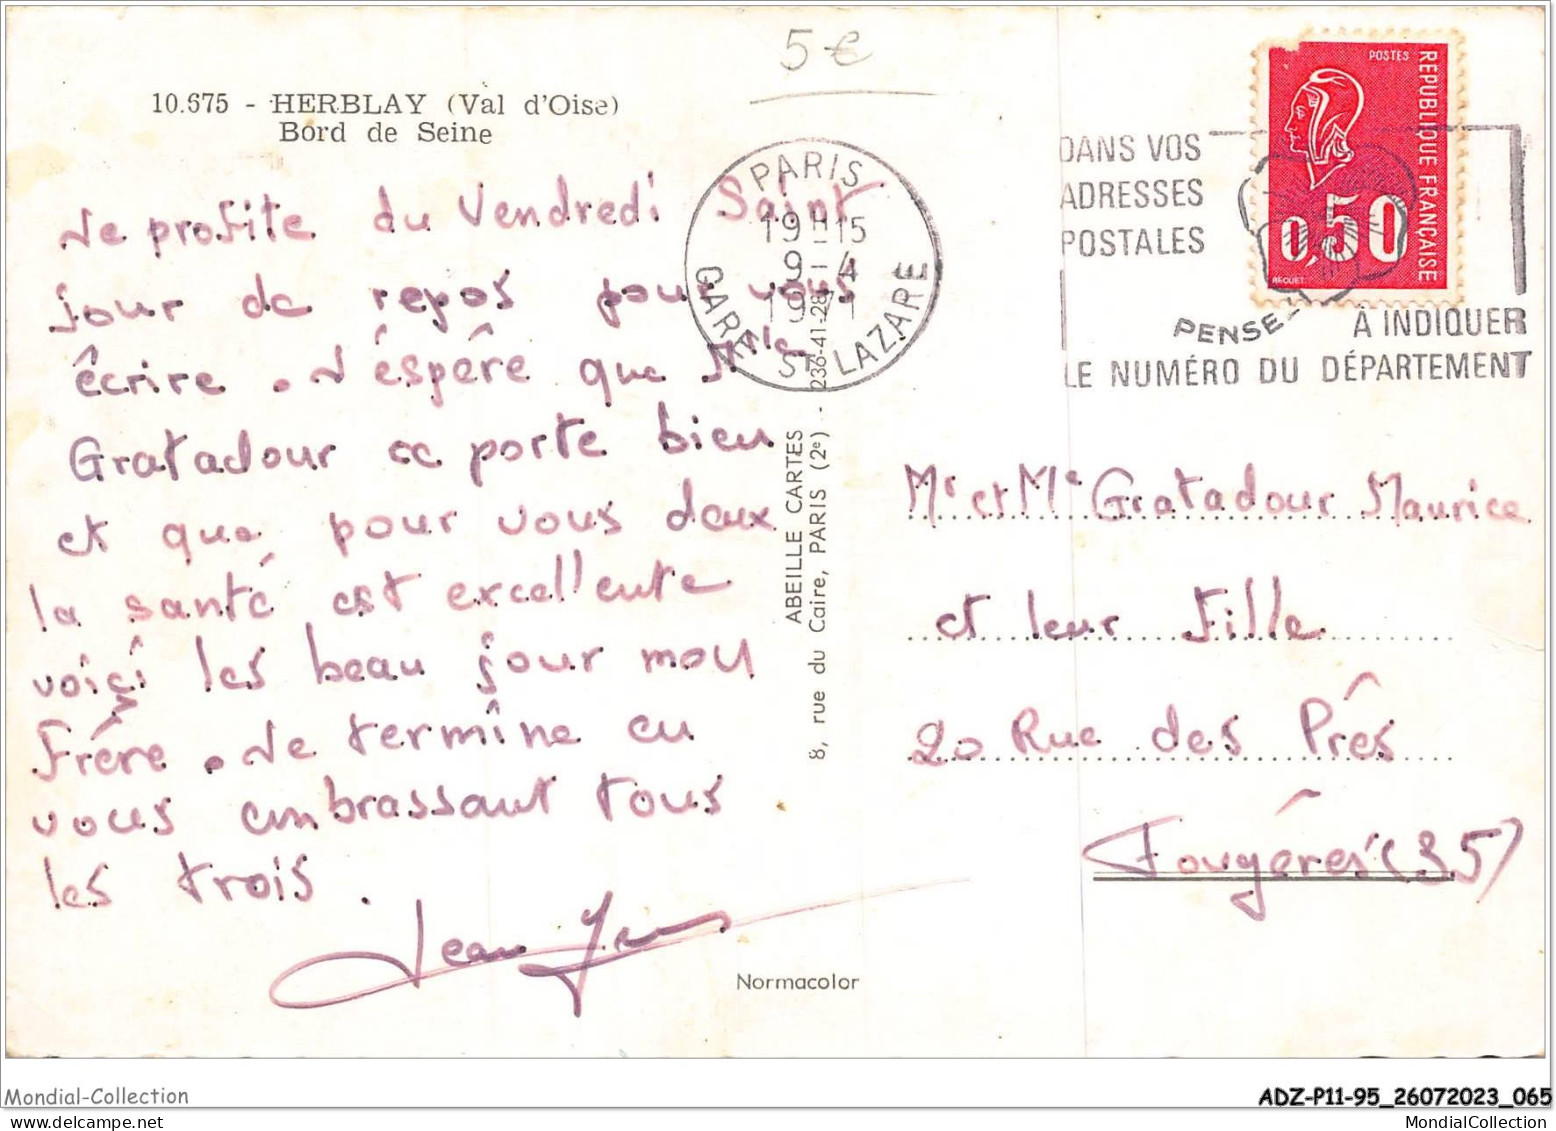 5€
10.675 - HERBLAY (Val d'Oise)
Bord de Seine
Je profite du Vendredi Saint
jour de repos pour vous
êcrire. J'éspêre que Mlle
Gratadour se porte bien
et que pour vous deux
la santé est excellente
voiçi les beau jour mon
Frére. Je termîne en
vous embrassant tous
les trois.
Jean Yves
PARIS
19H15
9-4
1971
GARE ST LAZARE
ABEILLE CARTES
8, rue du Caire, PARIS (2e) - 236-41-28
Normacolor
DANS VOS
ADRESSES
POSTALES
PENSEZ
À INDIQUER
LE NUMÉRO DU DÉPARTEMENT
POSTES
REPUBLIQUE FRANÇAISE
0,50
BEQUET
Mr et Me Gratadour Maurice
et leur Fille
20 Rue des Prés
Fougéres (35)
Mondial-Collection
ADZ-P11-95_26072023_065
MondialCollection.com